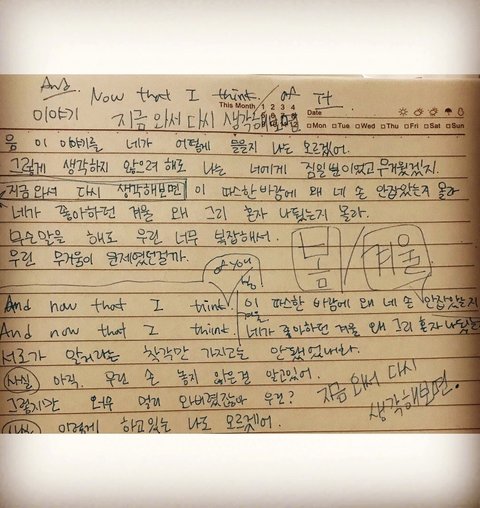 And.
Now that I think of It
This Month 1 2 3 4
Date
이야기 지금 와서 다시
Mon Tue Wed Thu Fri Sat Sun
음 이 이야기를 네가 어떻게 들을지 나도 모르겠어.
그렇게 생각하지 않으려 해도 나는 너에게 짐일뿐이었고 무거웠겠지.
지금 와서 다시 생각해보면 이 따스한 바람에 왜 네 손 안잡았는지 몰라
네가 좋아하던 겨울 왜 그리 혼자 나뒀는지 몰라.
무슨말을 해도 우린 너무 복잡해서.
우린 무거움이 문제였던걸까.
봄 / 겨울
of you
And now that I think. 이 따스한 바람에 왜 네 손 안잡았는지
And now that I think. 네가 좋아하던 겨울 왜 그리 혼자 나뒀는
서로가 알거라는 착각만 가지고는
사실 아직. 우린 손 놓지 않은걸 알고있어.
그렇지만 너무 멀리 와버렸잖아 우린?
지금 와서 다시
생각해보면.
사실 이렇게 하고있는 나도 모르겠어.